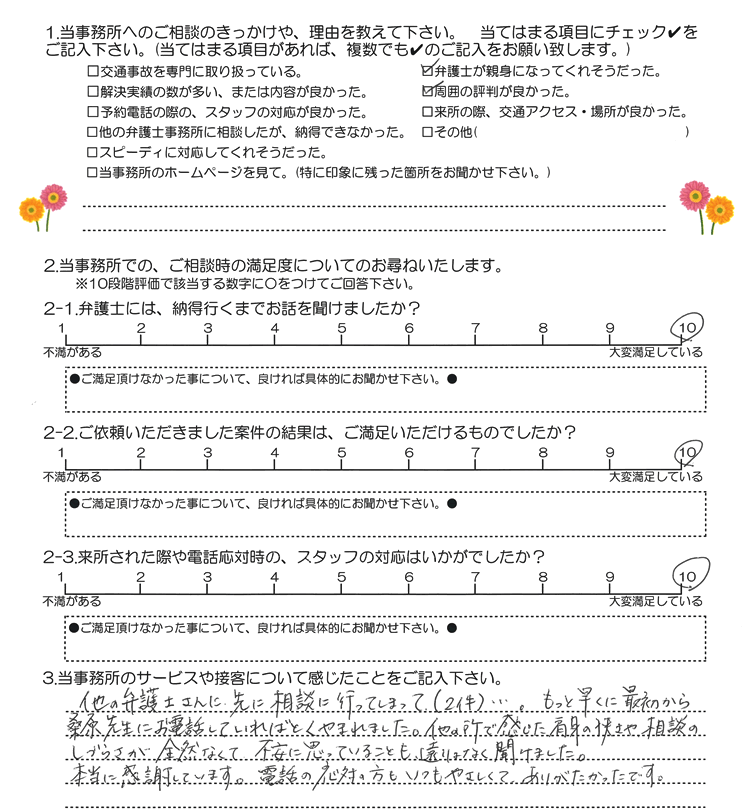 1.当事務所へのご相談のきっかけや、理由を教えて下さい。 当てはまる項目にチェック✔を
ご記入下さい。(当てはまる項目があれば、複数でも✔のご記入をお願い致します。)
□交通事故を専門に取り扱っている。 ☑弁護士が親身になってくれそうだった。
□解決実績の数が多い、または内容が良かった。 ☑周囲の評判が良かった。
□予約電話の際の、スタッフの対応が良かった。 □来所の際、交通アクセス・場所が良かった。
□他の弁護士事務所に相談したが、納得できなかった。 □その他( )
□スピーディに対応してくれそうだった。
□当事務所のホームページを見て。(特に印象に残った箇所をお聞かせ下さい。)
2.当事務所での、ご相談時の満足度についてのお尋ねいたします。
※10段階評価で該当する数字に○をつけてご回答下さい。
2-1.弁護士には、納得行くまでお話を聞けましたか?
1 2 3 4 5 6 7 8 9 10
不満がある 大変満足している
●ご満足頂けなかった事について、良ければ具体的にお聞かせ下さい。●
2-2.ご依頼いただきました案件の結果は、ご満足いただけるものでしたか?
1 2 3 4 5 6 7 8 9 10
不満がある 大変満足している
●ご満足頂けなかった事について、良ければ具体的にお聞かせ下さい。●
2-3.来所された際や電話応対時の、スタッフの対応はいかがでしたか?
1 2 3 4 5 6 7 8 9 10
不満がある 大変満足している
●ご満足頂けなかった事について、良ければ具体的にお聞かせ下さい。●
3.当事務所のサービスや接客について感じたことをご記入下さい。
他の弁護士さんに先に相談に行ってしまって(2件)…。もっと早くに最初から
桑原先生にお電話していればとくやまれました。他の所で感じた肩身の狭さや相談の
しづらさが全然なくて不安に思っていることも、遠りょなく聞けました。
本当に感謝しています。電話の応対の方もいつもやさしくてありがたかったです。